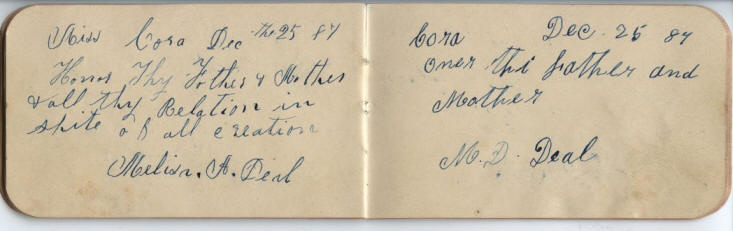 Miss Cora Dec the 25 87
Honor Thy Fother & Mother
& all thy Relation in
spite of all creation
Melisa. A. Deal
Cora Dec. 25 87
oner thi father and
Mother
M. D. Deal